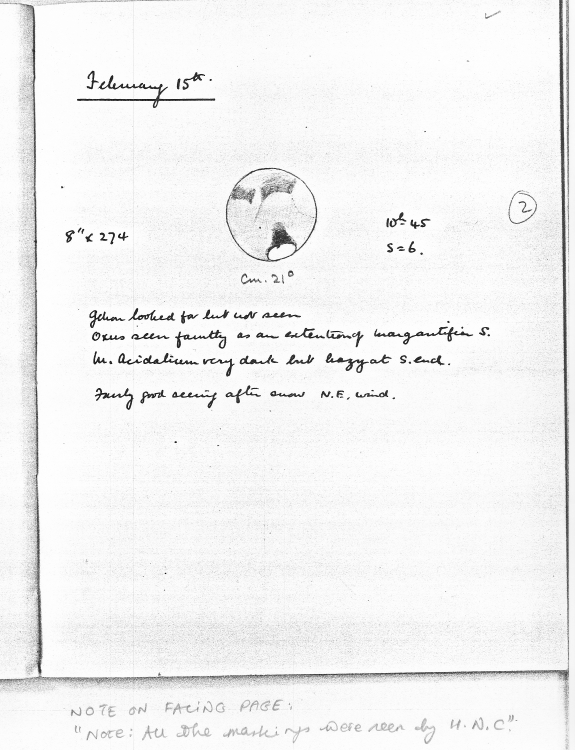 February 15th.
2
8" x 274
10h 45
S = 6.
Cm. 21°
Gehon looked for but not seen
Oxus seen faintly as an extention of Margaritifer S.
M. Acidalium very dark but hazy at S. end.
Fairly good seeing after snow N.E. wind.
NOTE ON FACING PAGE:
"NOTE: All the markings were seen by H.N.C."